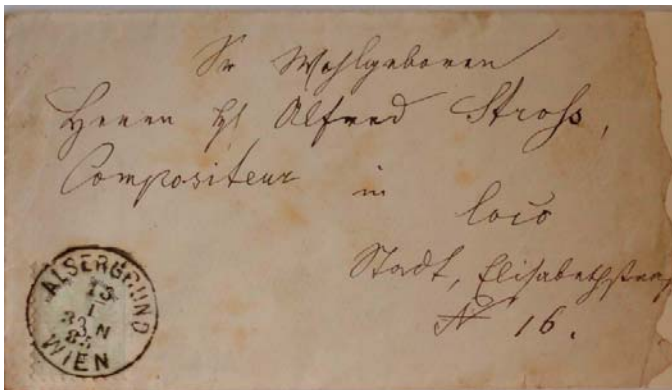 Sr Wohlgeboren
Herrn Alfred Stross,
Compositeur in
loco
Stadt, Elisabethstraß
№ 16.
ALSERGRUND
WIEN